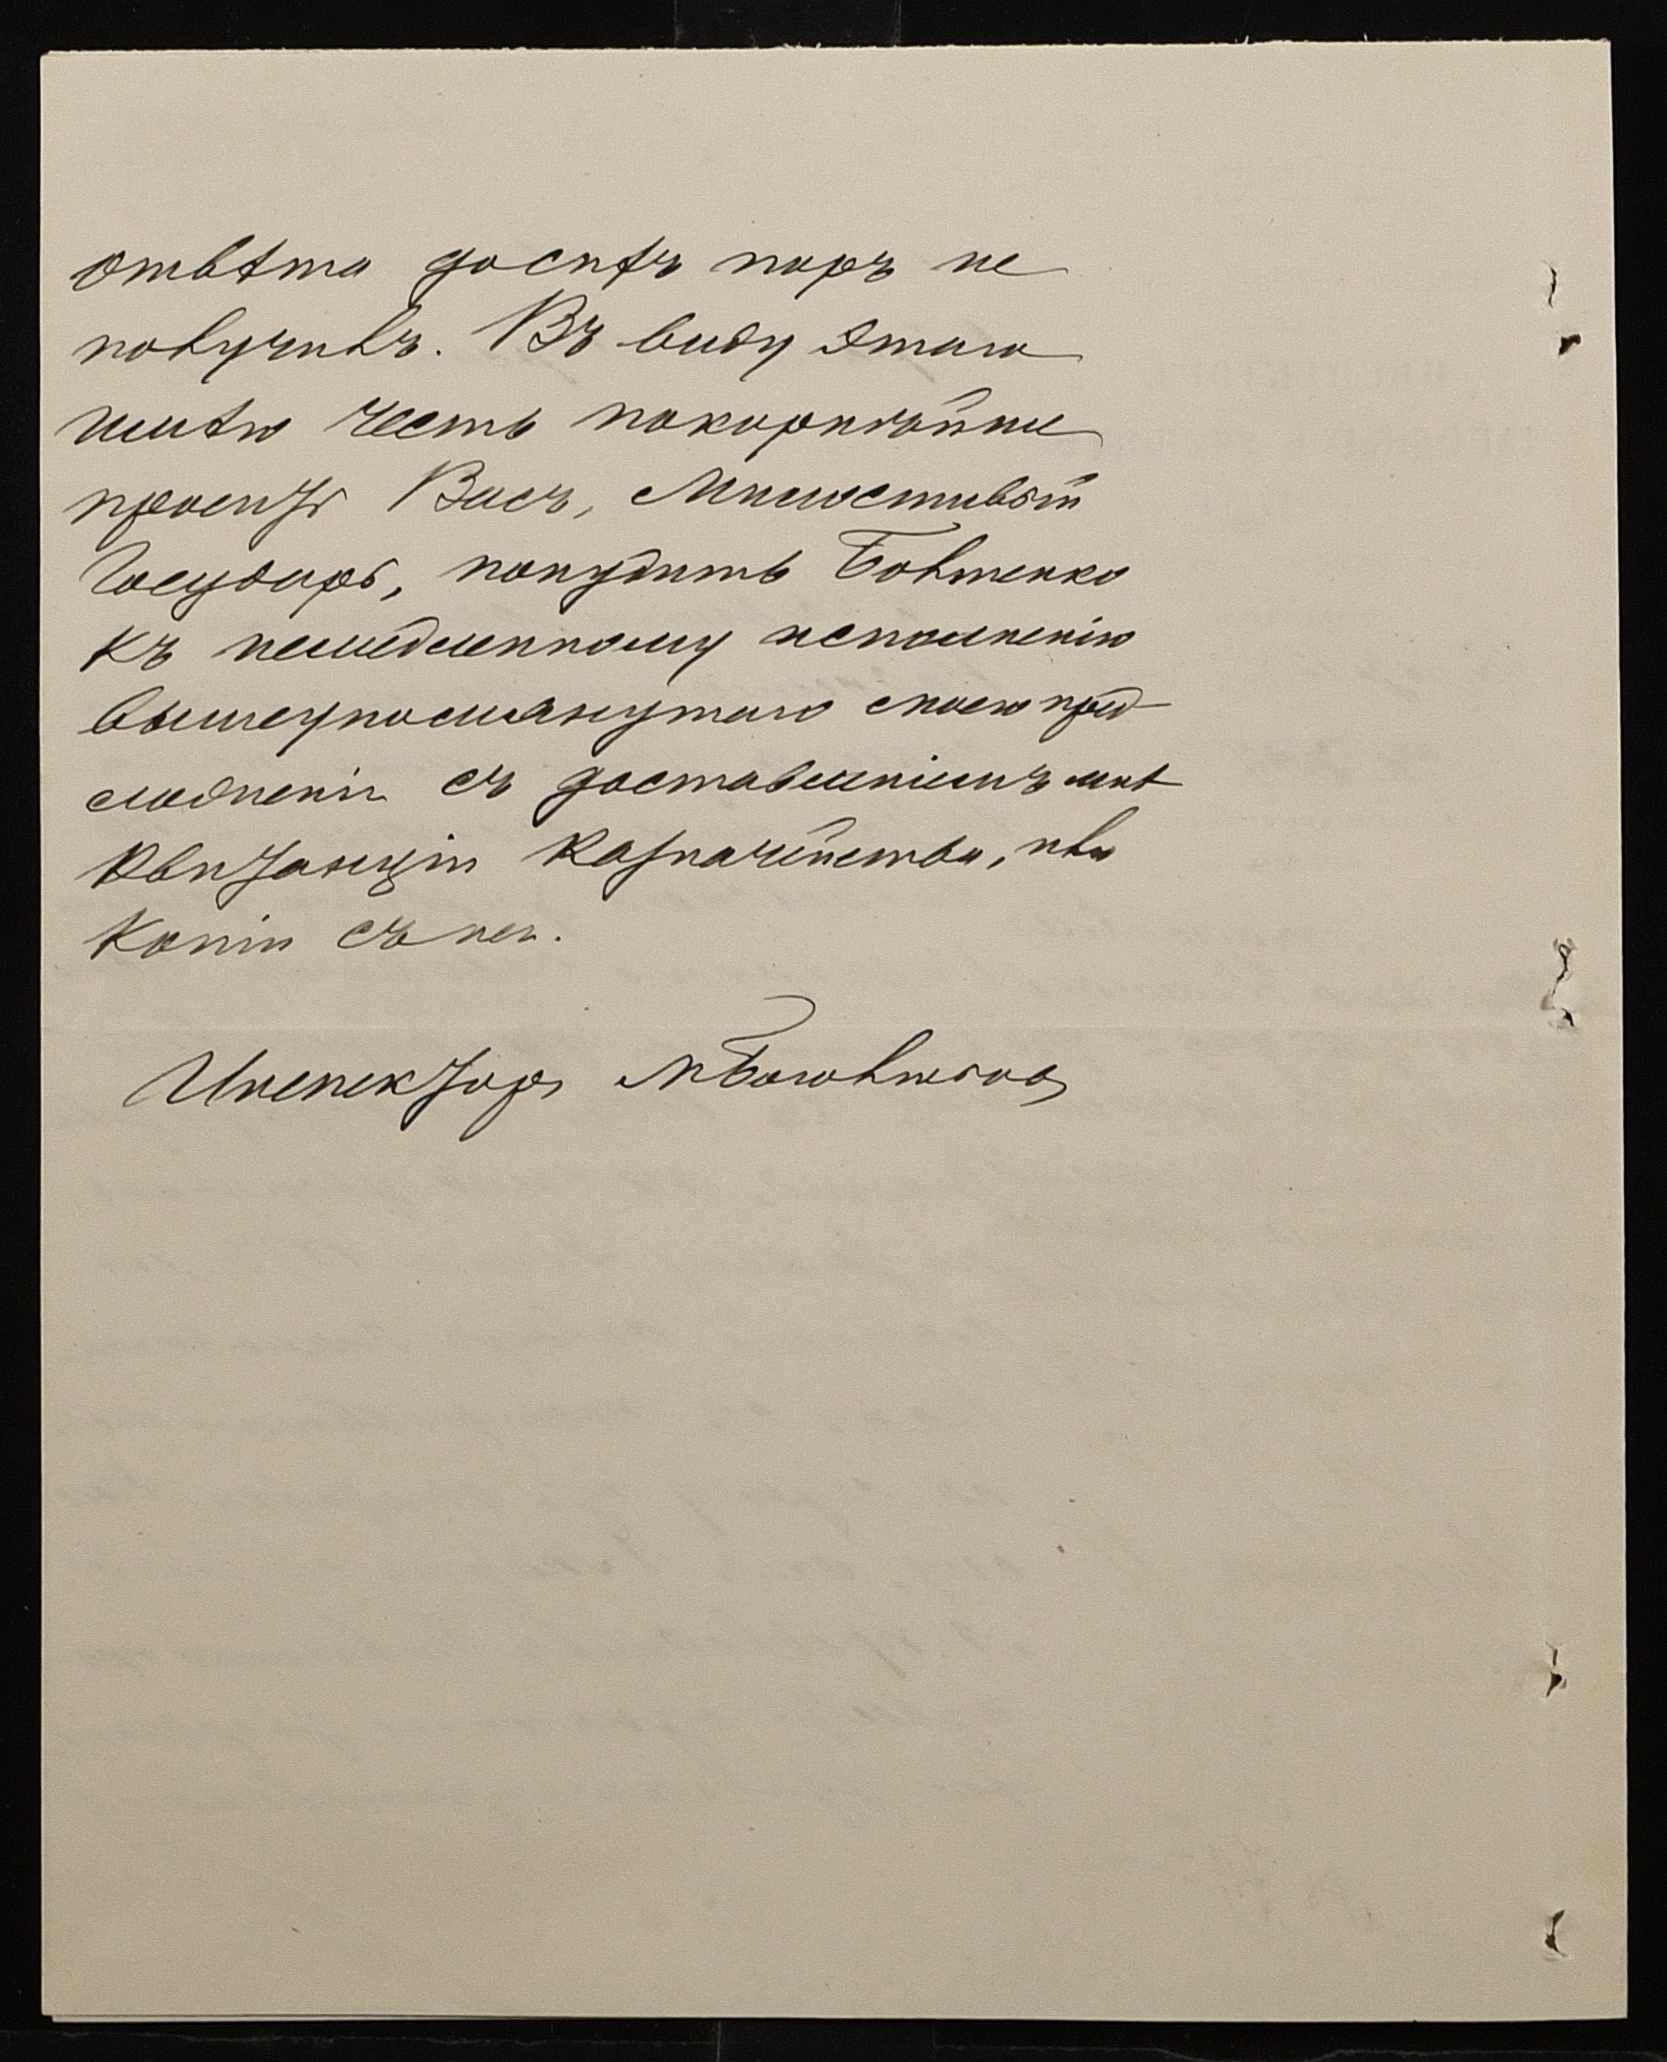 отвѣта досихъ поръ не
получилъ. Въ виду этого
имѣю честь покорнѣйше
просить Васъ, Милостивый
Государь, понудить Бовтенко
къ немедленному исполненію
вышеупомянутаго моего пред-
ложенія съ доставленіемъ мнѣ
квитанціи Казначейства, или
копіи съ нея.
Инспекторъ